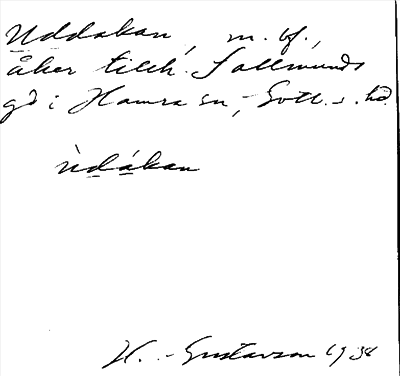 Uddakan, m. bf.,
åker tillh. Sallmunds
gd i Hamra sn, Gotl. s. hd.
ùdákan
H. Gustavson 1938